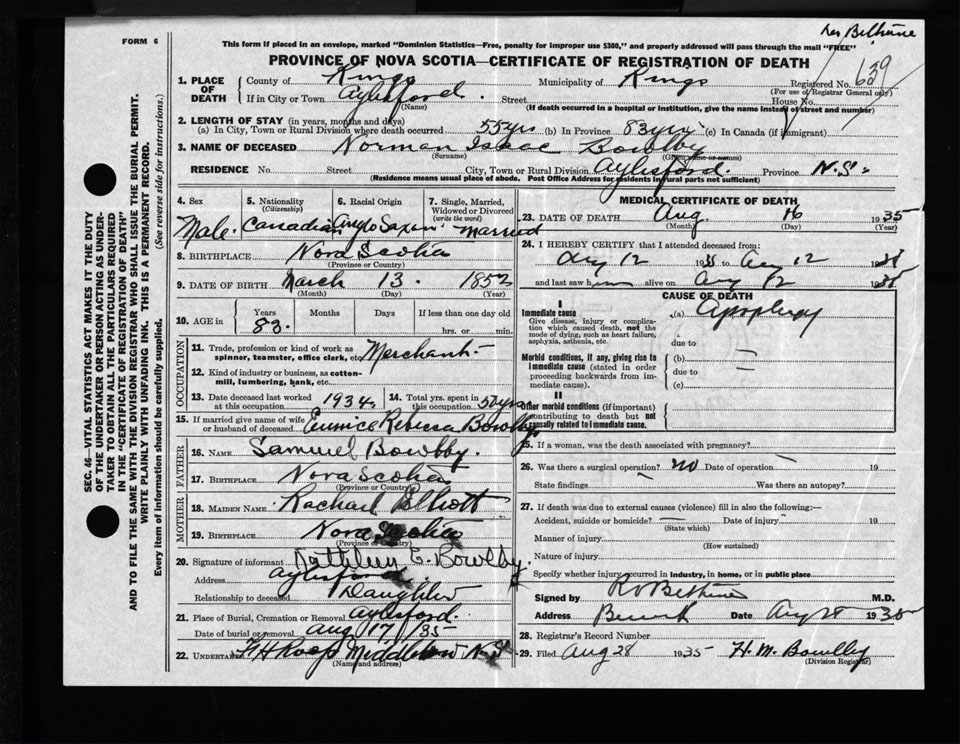 FORM 6
This form if placed in an envelope, marked "Dominion Statistics—Free, penalty for improper use $300," and properly addressed will pass through the mail "FREE"
PROVINCE OF NOVA SCOTIA—CERTIFICATE OF REGISTRATION OF DEATH
SEC. 46—VITAL STATISTICS ACT MAKES IT THE DUTY
OF THE UNDERTAKER OR PERSON ACTING AS UNDER-
TAKER TO OBTAIN ALL THE PARTICULARS REQUIRED
IN THE "CERTIFICATE OF REGISTRATION OF DEATH"
AND TO FILE THE SAME WITH THE DIVISION REGISTRAR WHO SHALL ISSUE THE BURIAL PERMIT.
WRITE PLAINLY WITH UNFADING INK. THIS IS A PERMANENT RECORD.
Every item of information should be carefully supplied. (See reverse side for instructions.)
1. PLACE OF DEATH
County of Kings Municipality of Kings Registered No. 639
(For use of Registrar General only)
If in City or Town Aylesford. Street House No.
(Name) (If death occurred in a hospital or institution, give the name instead of street and number)
2. LENGTH OF STAY (in years, months and days)
(a) In City, Town or Rural Division where death occurred 55 yrs (b) In Province 83 yrs (c) In Canada (if immigrant)
3. NAME OF DECEASED Norman Isaac Bowlby
(Surname) (Given name or names)
RESIDENCE No. Street City, Town or Rural Division Aylesford. Province N.S.
(Residence means usual place of abode. Post Office Address for residents in rural parts not sufficient)
4. Sex 5. Nationality 6. Racial Origin 7. Single, Married,
(Citizenship) Widowed or Divorced
(write the word)
Male. Canadian Anglo Saxon married
8. BIRTHPLACE Nova Scotia
(Province or Country)
9. DATE OF BIRTH March 13. 1852
(Month) (Day) (Year)
10. AGE in Years Months Days If less than one day old
83. hrs. or min.
OCCUPATION
11. Trade, profession or kind of work as Merchant
spinner, teamster, office clerk, etc.
12. Kind of industry or business, as cotton-
mill, lumbering, bank, etc.
13. Date deceased last worked at this occupation 1934. 14. Total yrs. spent in this occupation 50 yrs
15. If married give name of wife or husband of deceased Eunice Rebecca Bowlby
FATHER
16. NAME Samuel Bowlby.
17. BIRTHPLACE Nova Scotia
(Province or Country)
MOTHER
18. MAIDEN NAME Rachael Elliott
19. BIRTHPLACE Nova Scotia
(Province or Country)
20. Signature of informant Kathleen E. Bowlby.
Address Aylesford.
Relationship to deceased Daughter
21. Place of Burial, Cremation or Removal Aylesford.
Date of burial or removal Aug 17/35
22. UNDERTAKER F H Roop Middleton N.S.
(Name and address)
MEDICAL CERTIFICATE OF DEATH
23. DATE OF DEATH Aug 16 1935
(Month) (Day) (Year)
24. I HEREBY CERTIFY that I attended deceased from:
Aug 12 19 to Aug 12 19
and last saw him alive on Aug 12 19
CAUSE OF DEATH
I
Immediate cause (a) Apoplexy
Give disease, injury or complica-
tion which caused death, not the
mode of dying, such as heart failure,
asphyxia, asthenia, etc.
due to
Morbid conditions, if any, giving rise to
immediate cause (stated in order
proceeding backwards from im-
mediate cause).
(b)
due to
(c)
II
Other morbid conditions (if important)
contributing to death but not
causally related to immediate cause.
25. If a woman, was the death associated with pregnancy?
26. Was there a surgical operation? no Date of operation 19
State findings Was there an autopsy?
27. If death was due to external causes (violence) fill in also the following:—
Accident, suicide or homicide? Date of injury 19
(State which)
Manner of injury
(How sustained)
Nature of injury
Specify whether injury occurred in industry, in home, or in public place
Signed by M.D.
Address Berwick Date Aug 1935
28. Registrar's Record Number
29. Filed Aug 28 1935 H. M. Bowlby
(Division Registrar)